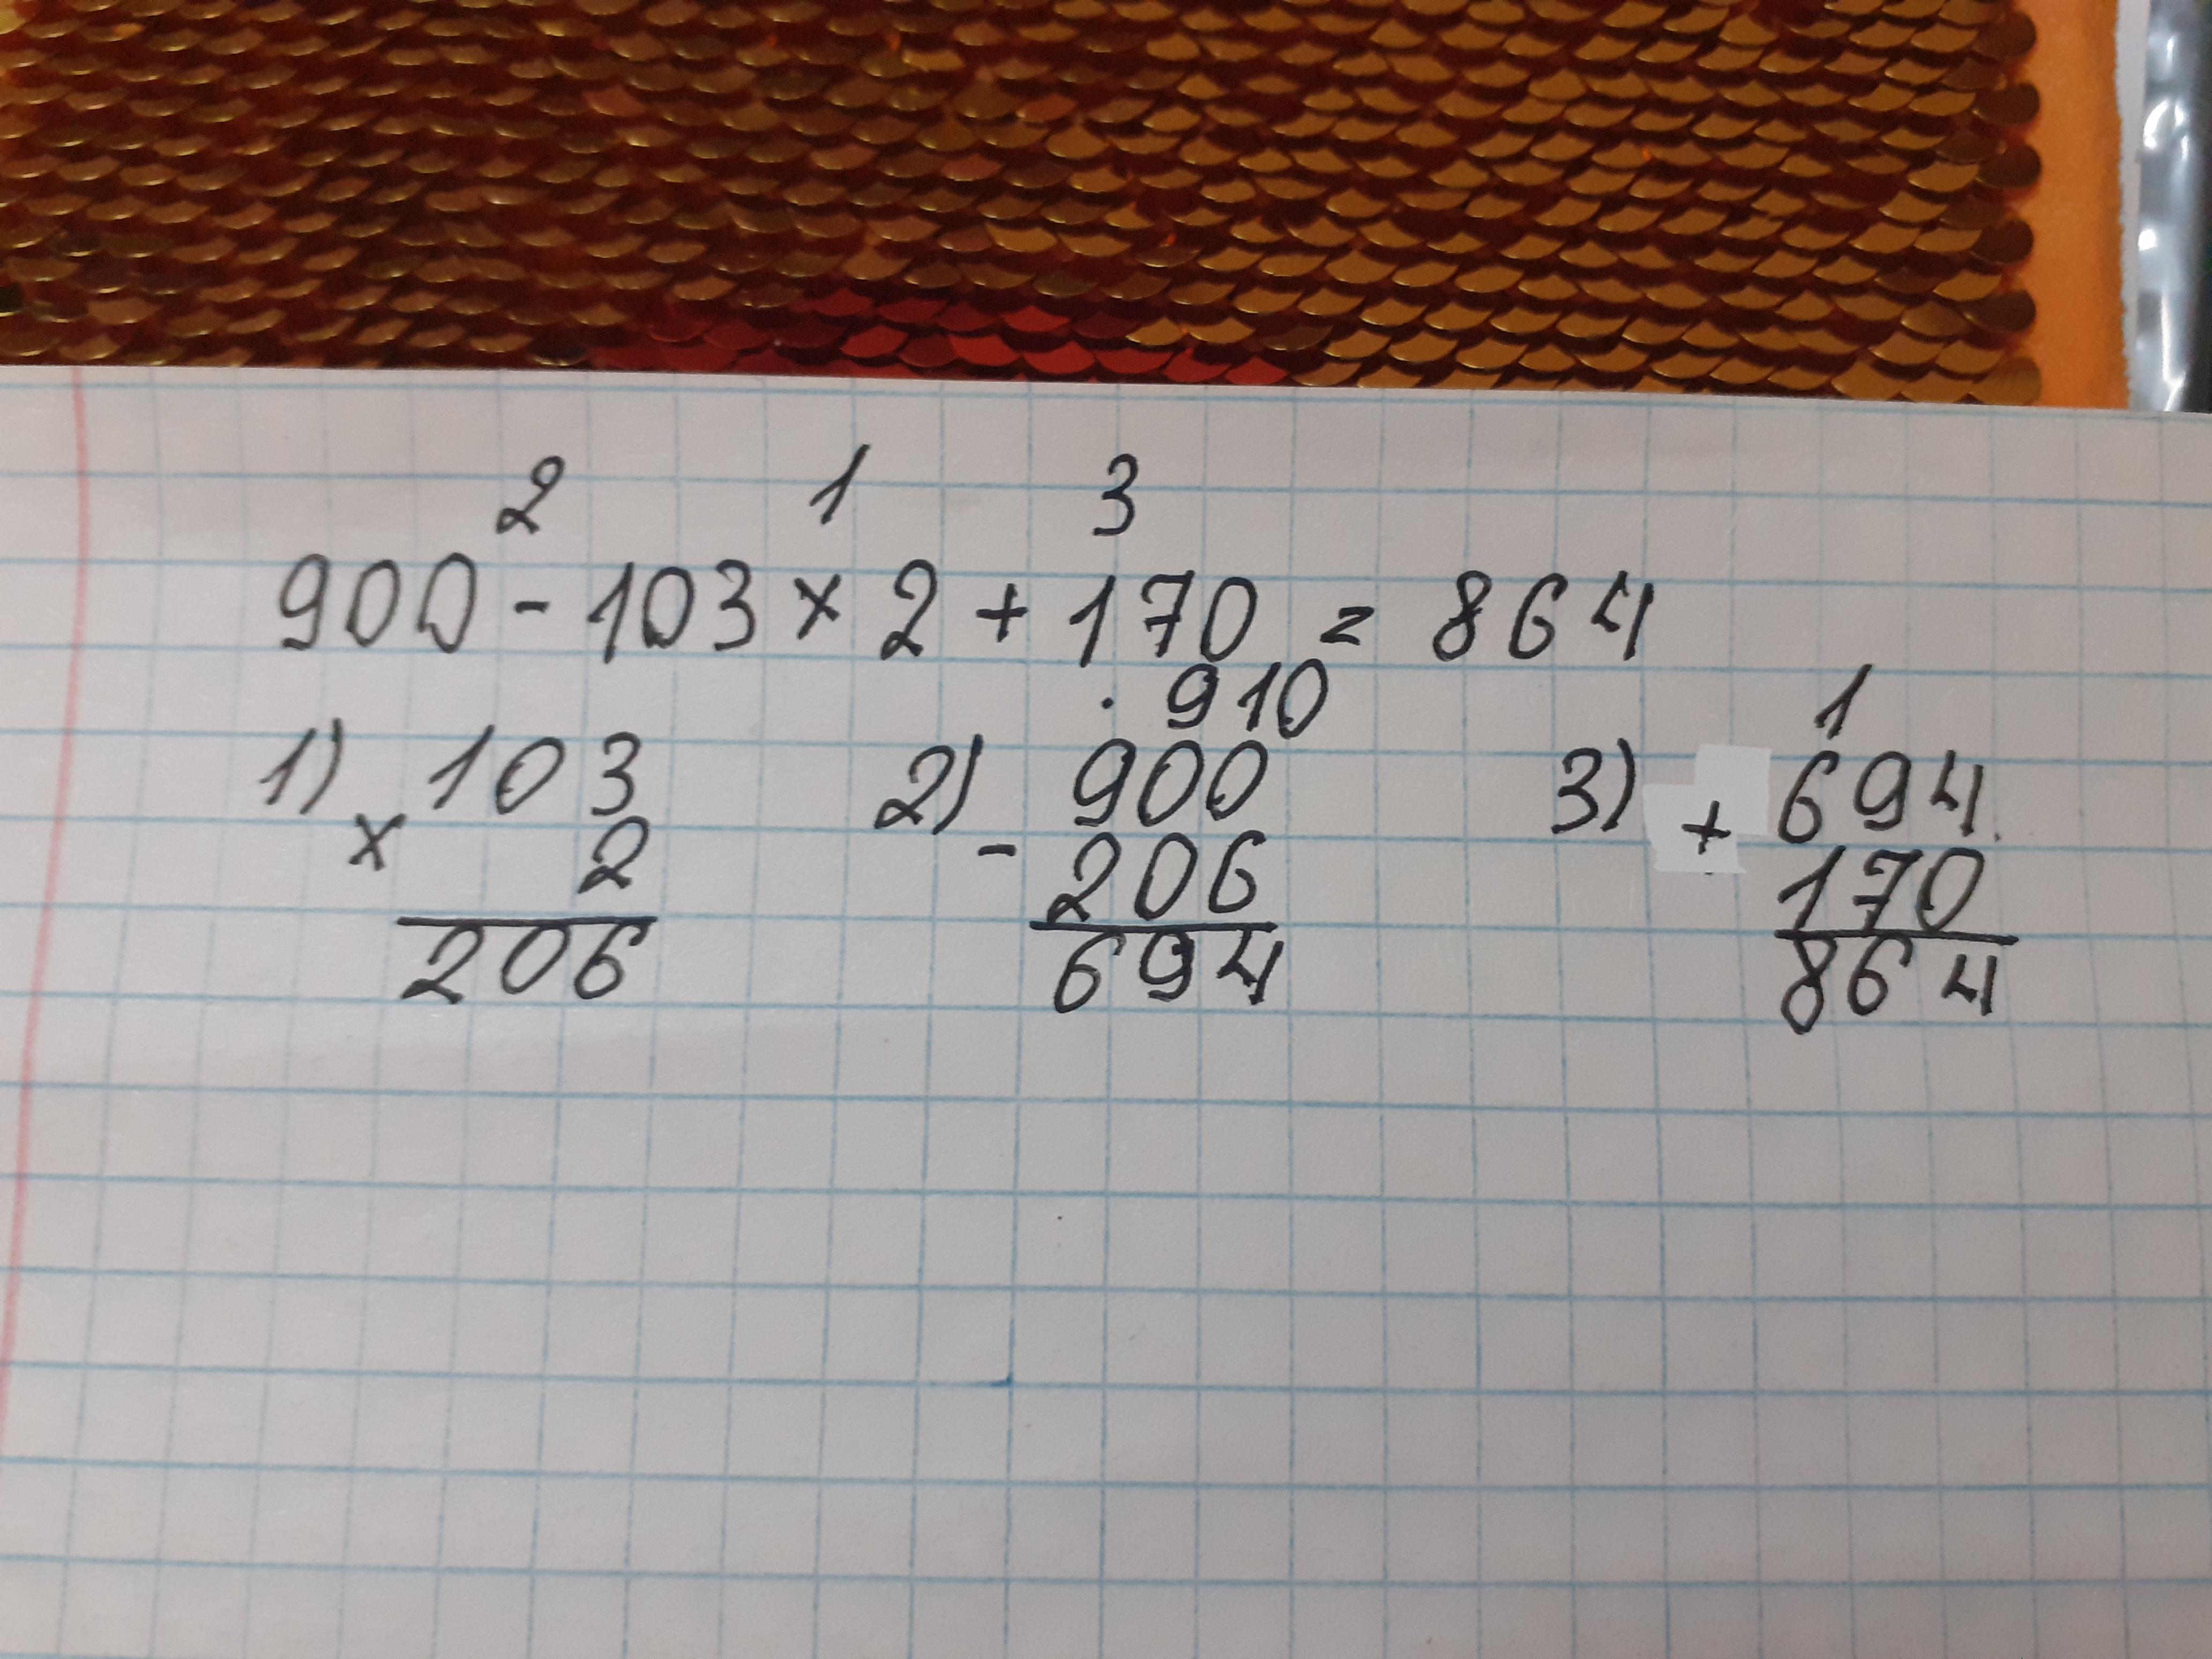 2 1 3
900 - 103 × 2 + 170 = 864
. 910 1
1) 103 2) 900 3) + 694.
× 2 - 206 170
206 694 864